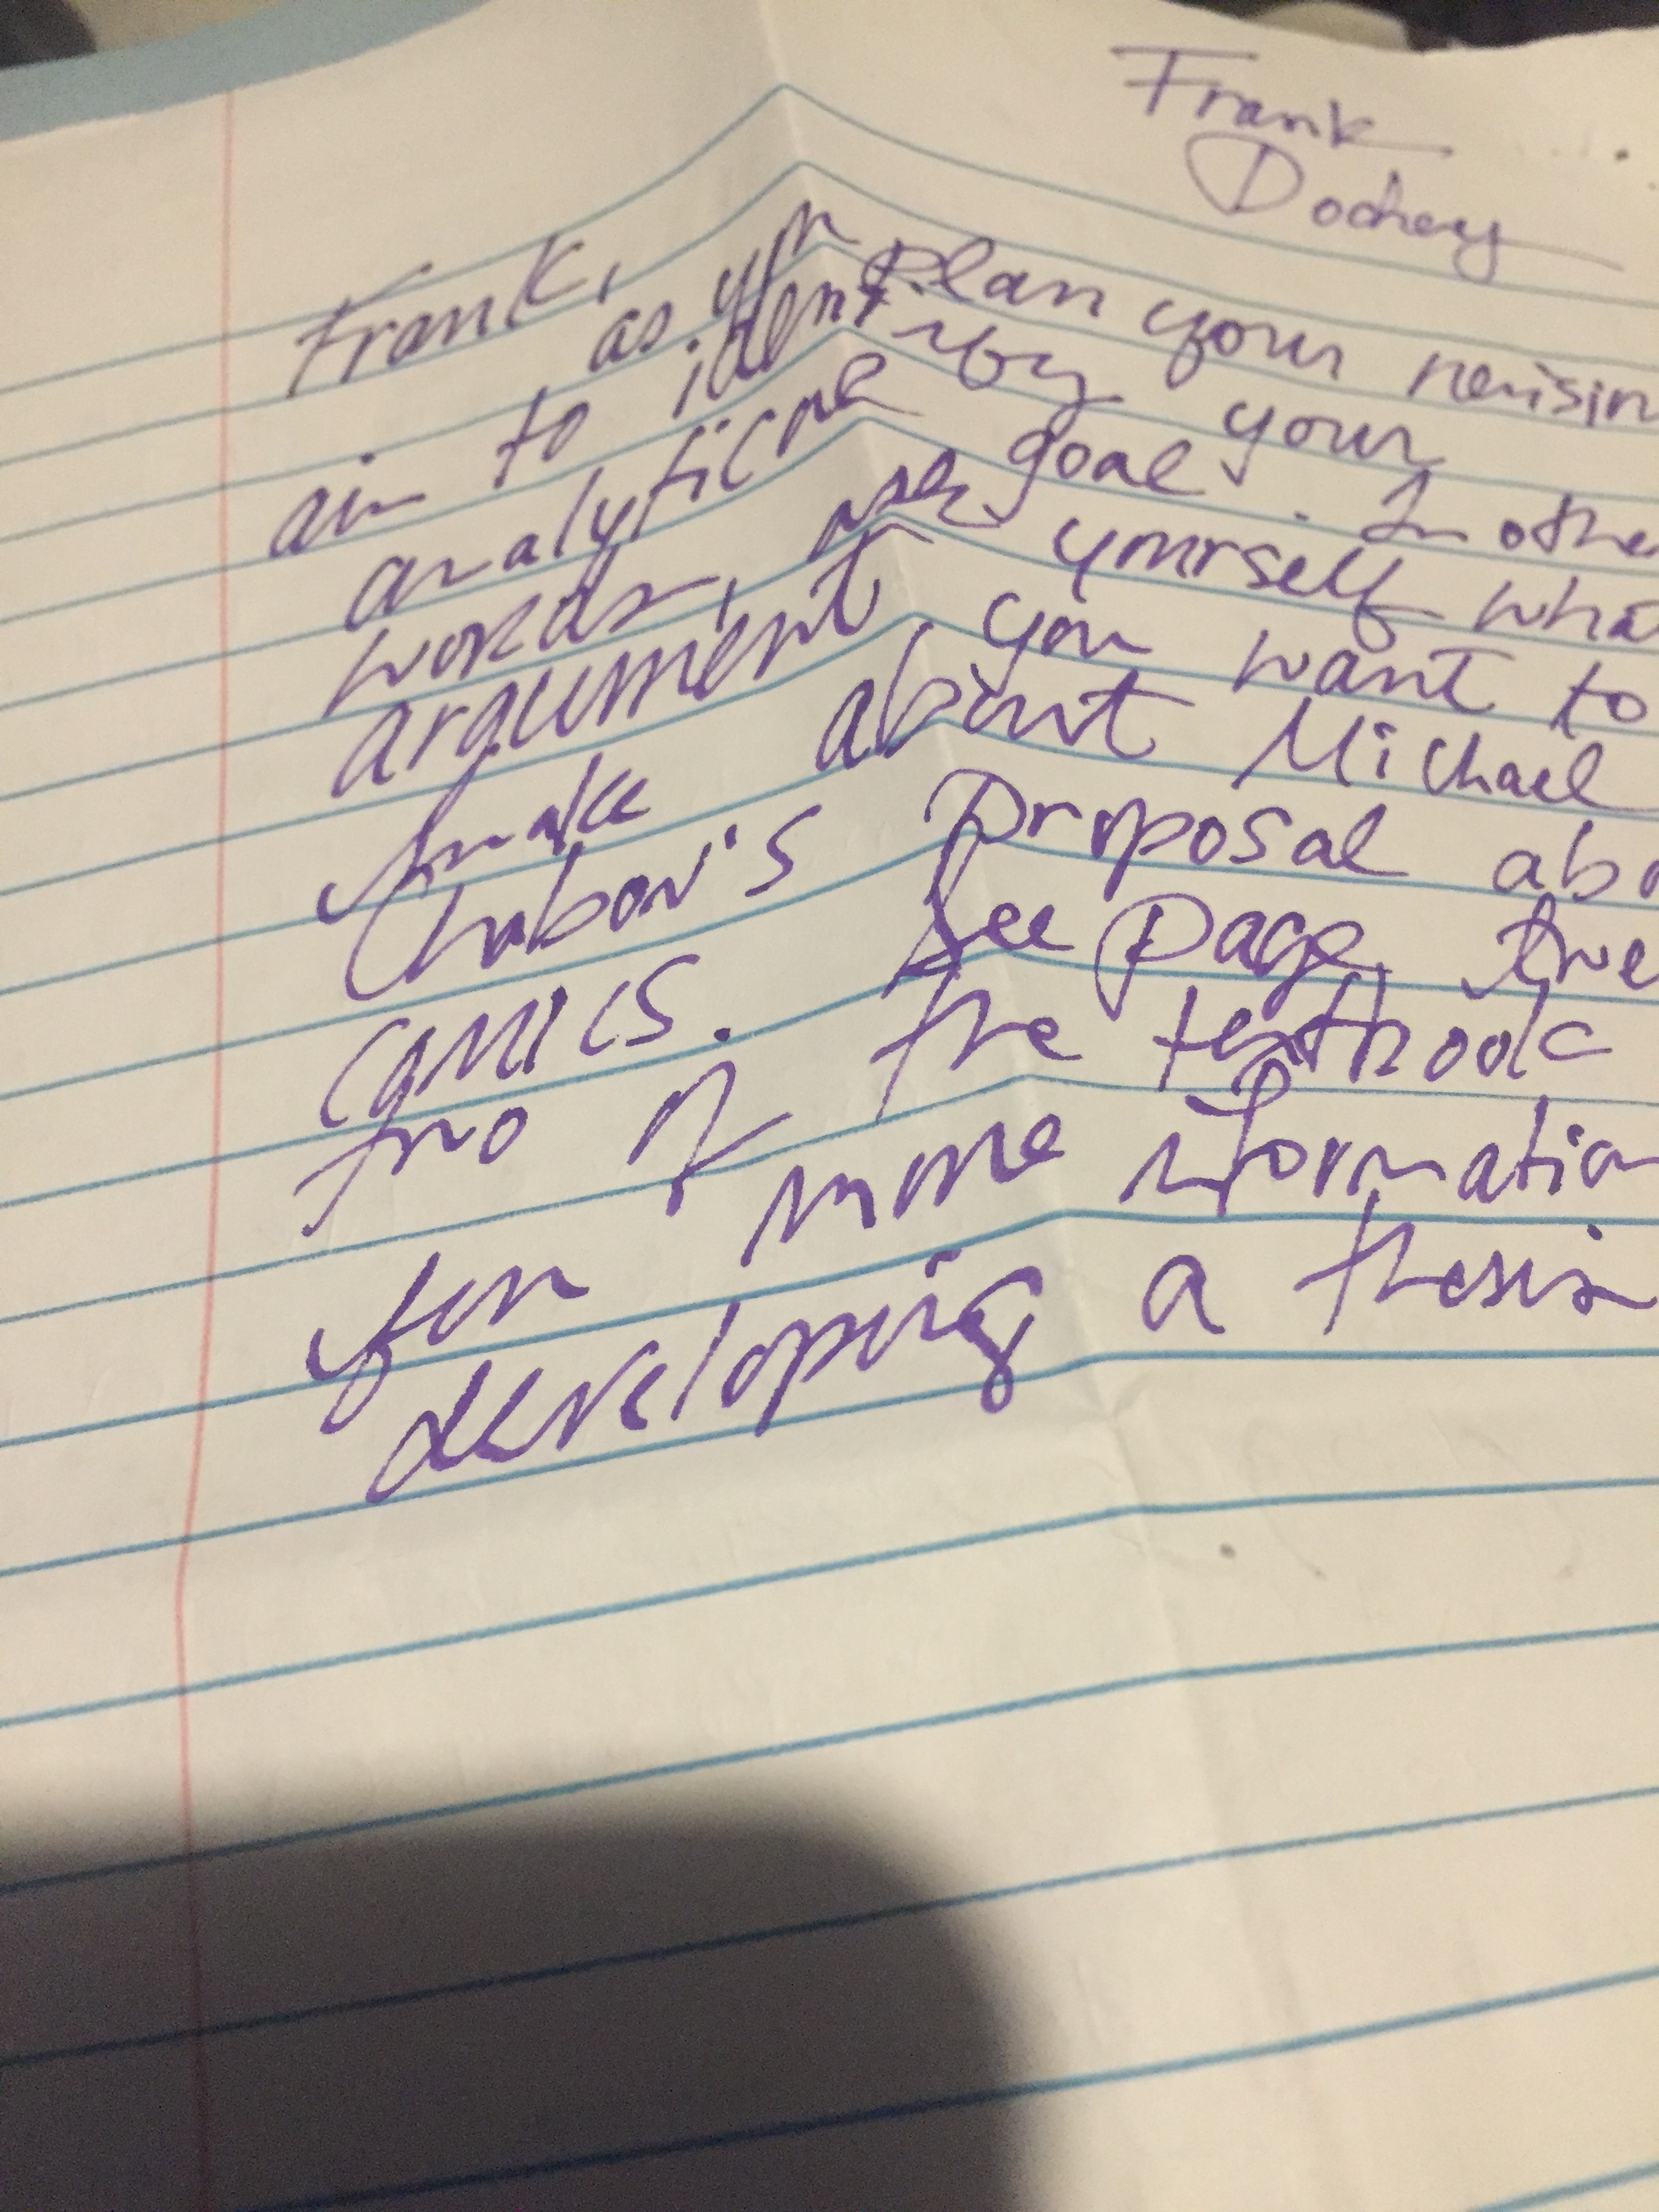 Frank
Frank,
as you plan your revisin
aim to identify your
analytical goal. In othe
words, ask yourself wha
argument you want to
make about Michael
Chabon's proposal abo
comics. See page
two of the textbook
for more information
developing a thesis